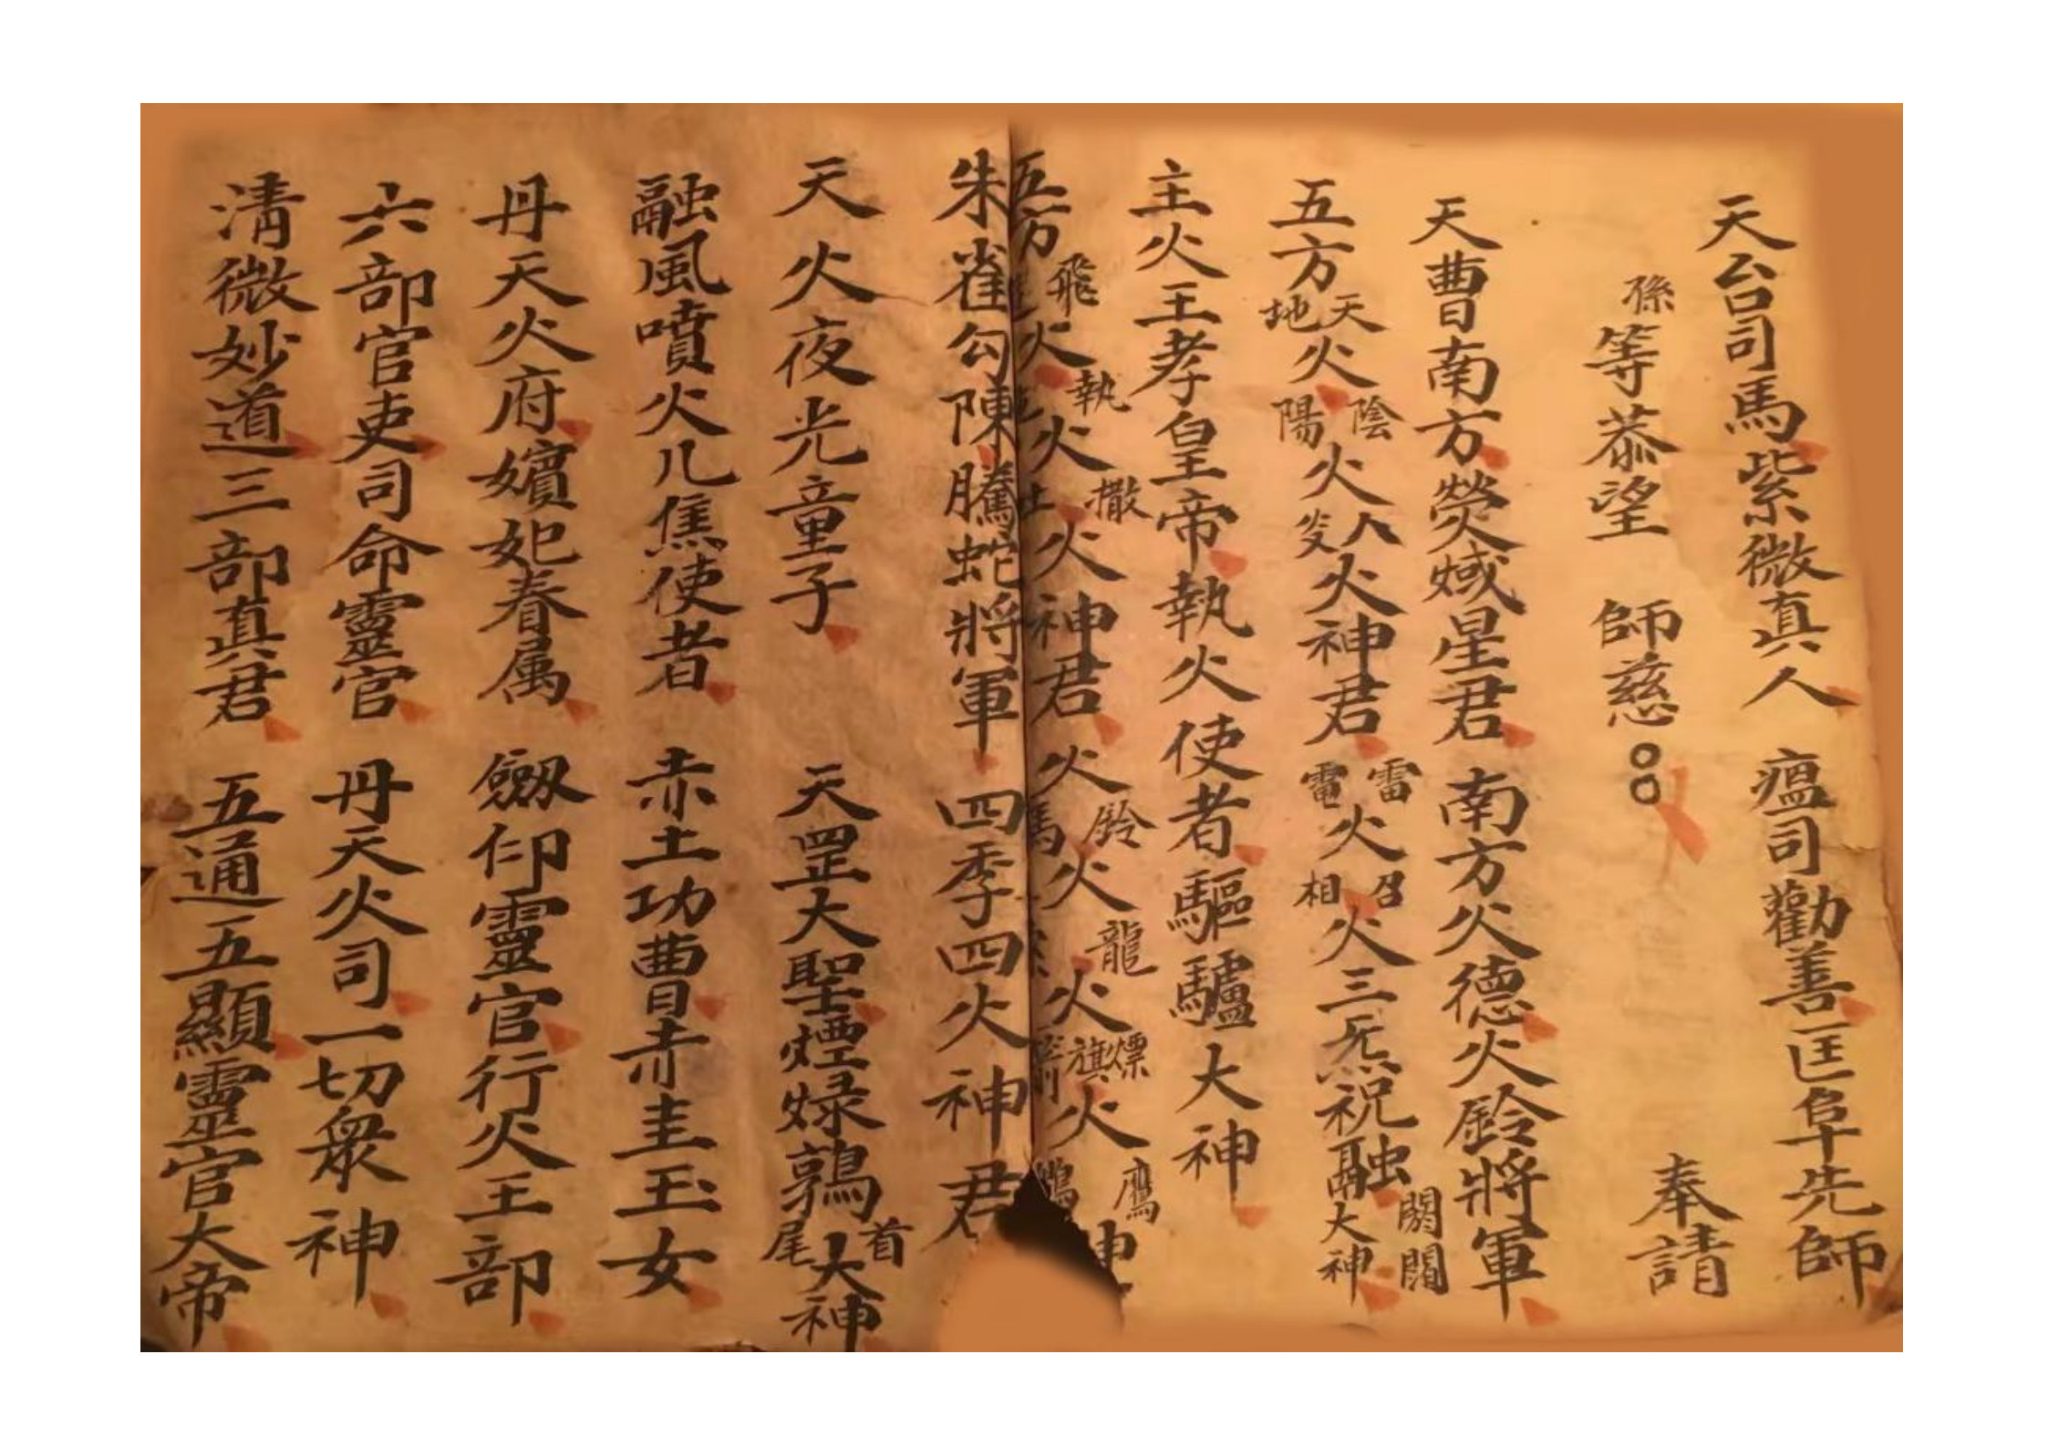 天台司馬紫微真人 瘟司勸善匡阜先師
孫等恭望 師慈 奉請
天曹南方熒惑星君 南方火德火鈴將軍
五方天地火陰陽火火神君 雷電火召相火三炁祝融大神
主火王孝皇帝執火使者驅驢大神
五方飛火執火撒火神君 火鈴火龍火旗火鷹
朱雀勾陳騰蛇將軍 四季四火神君
天火夜光童子 天罡大聖煙焿鶉首尾大神
融風噴火儿焦使者 赤土功曹赤圭玉女
丹天火府嬪妃眷属 劔印靈官行火王部
六部官吏司命靈官 丹天火司一切衆神
清微妙道三部真君 五通五顯靈官大帝